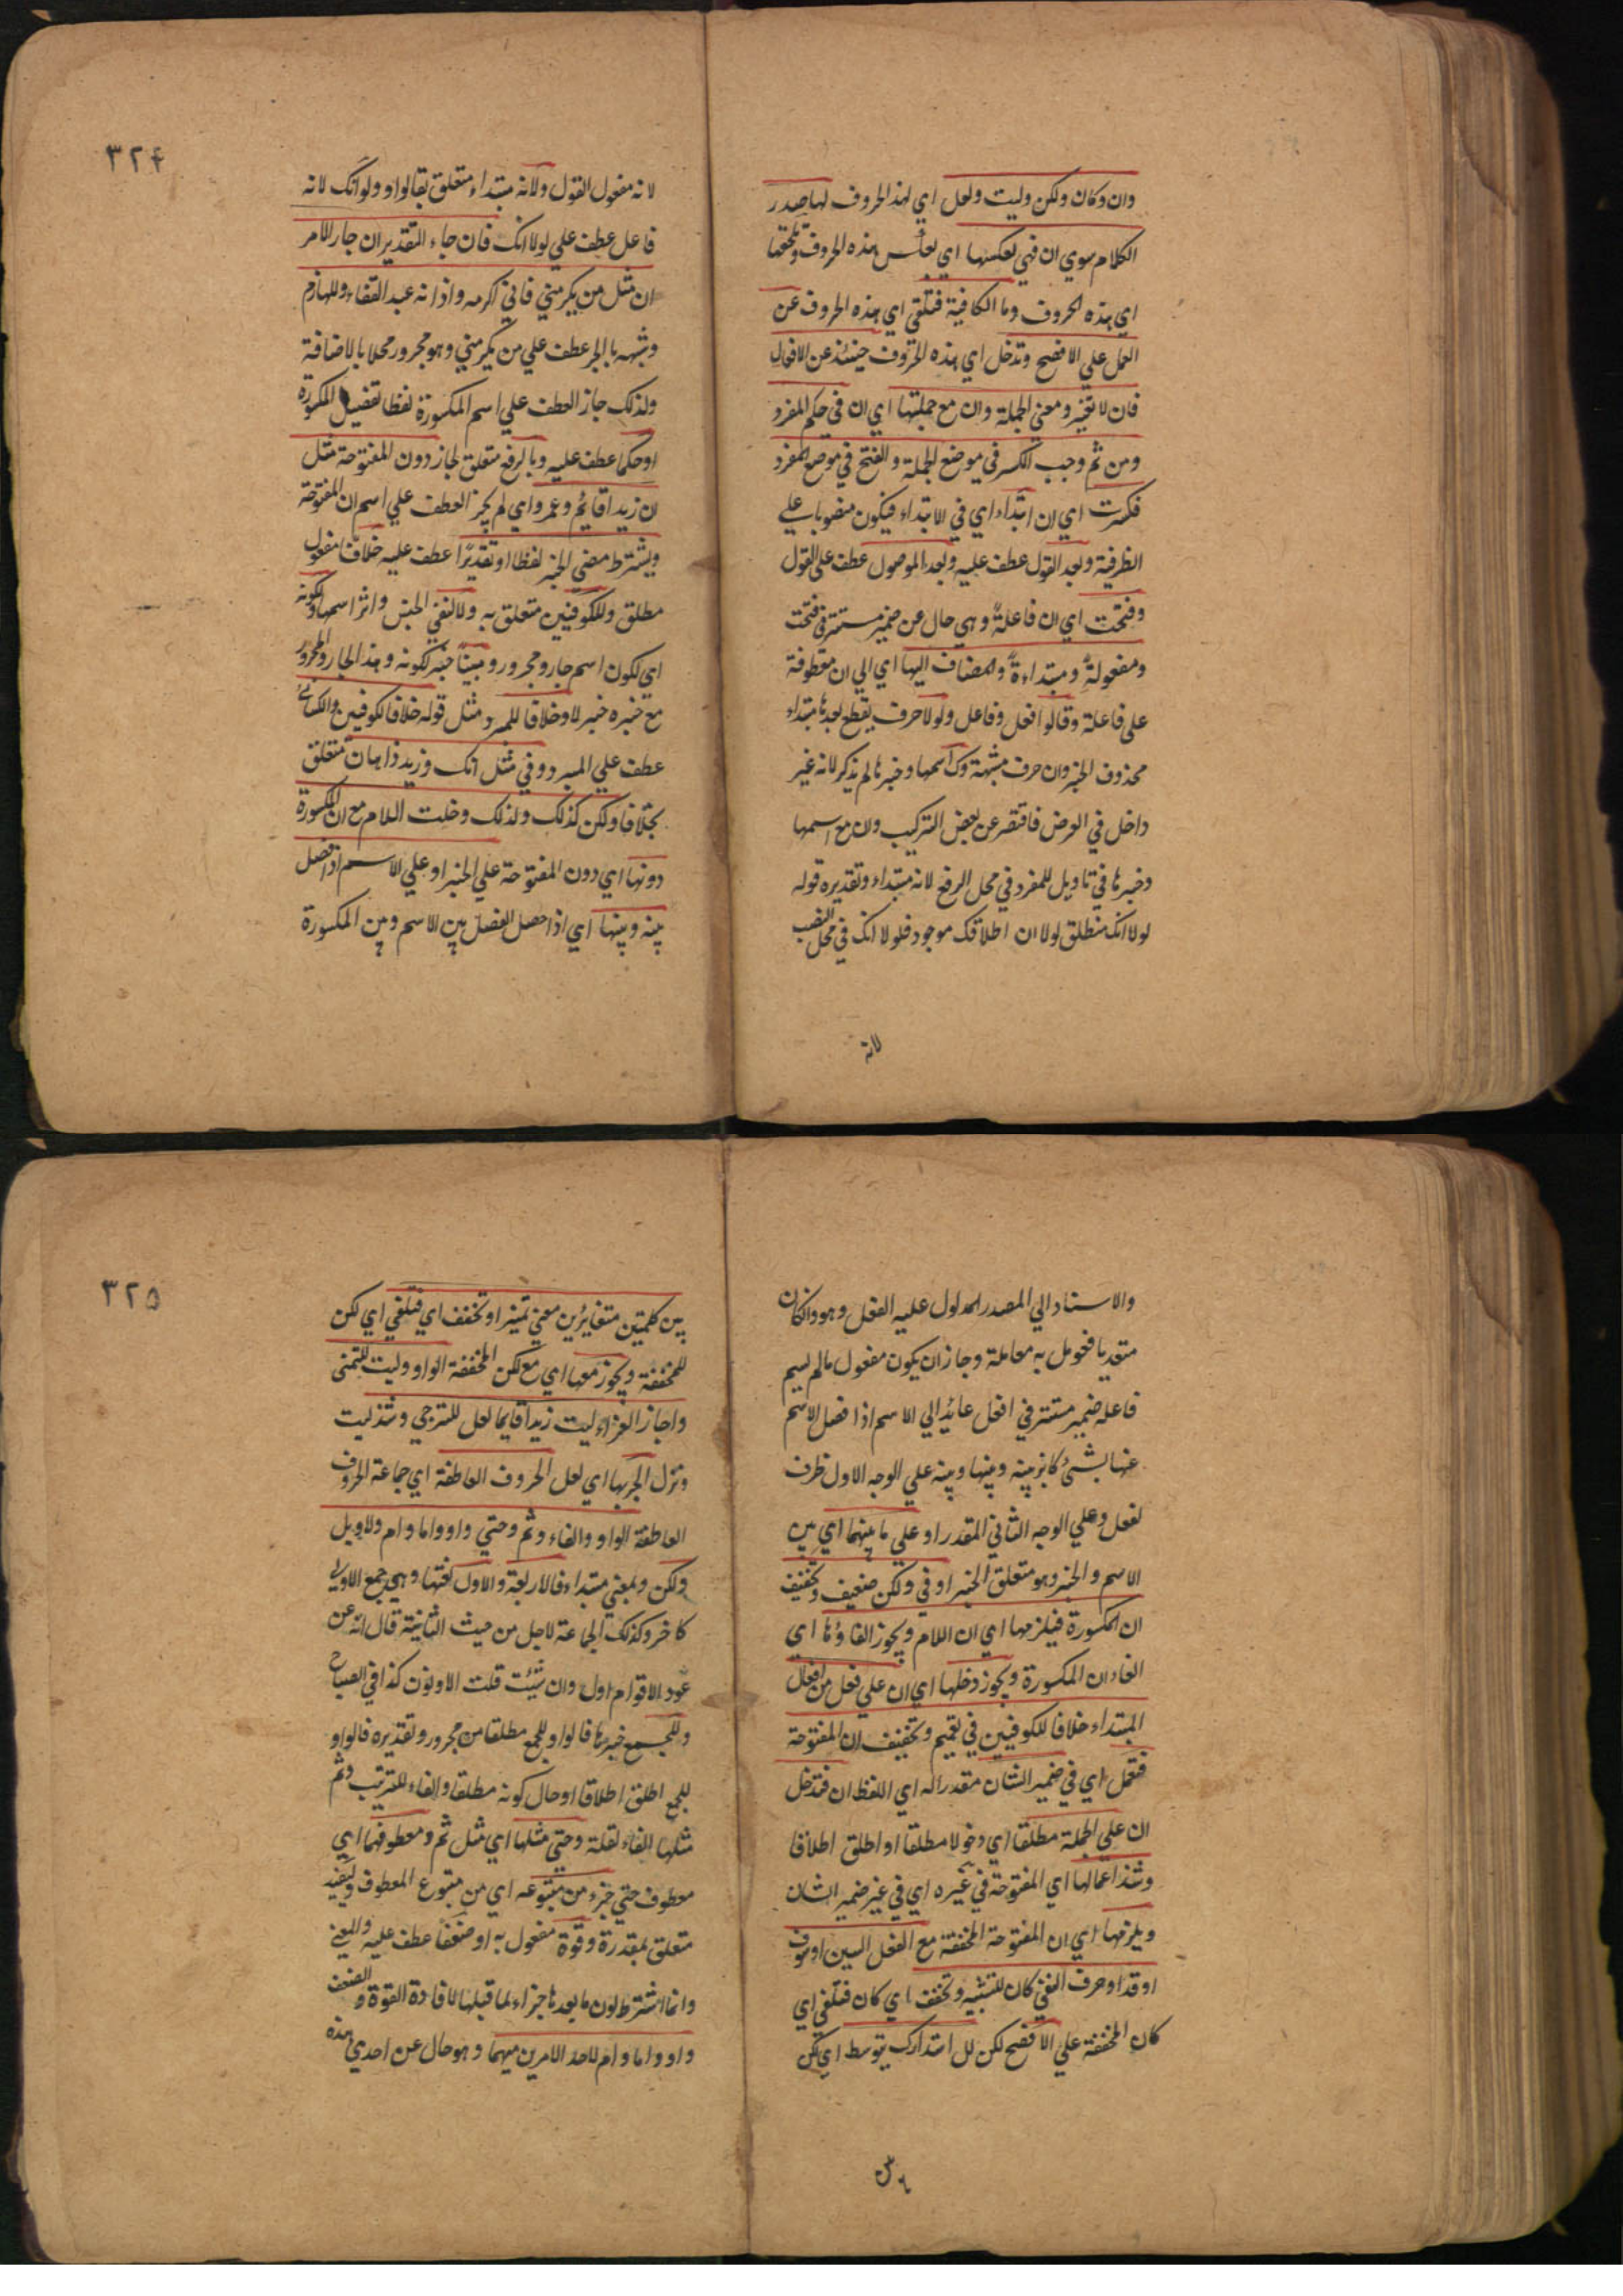 وان وكان ولكن وليت ولعل اي لهذ الحروف لها صدر
الكلام سوي ان فهي بعكسها اي بعكس هذه الحروف وتلحقها
اي هذه الحروف وما الكافية فتلقي اي هذه الحروف عن
العمل علي الافصح وتدخل اي هذه الحروف حينئذ عن الافعال
فان لا تغير ومعني الجملة وان مع جملتها اي ان في حكم المفرد
ومن ثم وجب الكسر في موضع الجملة والفتح في موضع المفرد
فكسرت اي ان ابتداء اي في الابتداء فيكون منصوبا علي
الظرفية وبعد القول عطف عليه وبعد الموصول عطف علي القول
وفتحت اي ان فاعلة وهي حال عن ضمير مستتر في فتحت
ومفعولة ومبتداءة والمضاف اليها اي الي ان معطوفة
علي فاعلة وقالوا فعل وفاعل ولولا حرف يقطع بعدها مبتداء
محذوف الخبر وان حرف مشبهة وك اسمها وخبرها لم يذكر لانه غير
داخل في العرض فاقتصر عن بعض التركيب وان مع اسمها
وخبرها في تاويل للمفرد في محل الرفع لانه مبتداء وتقديره قوله
لولا انك منطلق لولا ان اطلاقك موجود فلولا انك في محل النصب
لانه
٣٢۴
لانه مفعول القول ولانه مبتداء متعلق بقالوا و ولو انك لانه
فاعل عطف علي لولا انك فان جاء التقدير ان جار الامر
ان مثل من يكرمني فاني اكرمه واذا انه عبد القفاء واللهازم
وشبهه بالجر عطف علي من يكرمني وهو مجرور محلا بالاضافة
ولذلك جاز العطف علي اسم المكسورة لفظا تفصيل المكسورة
او حكما عطف عليه وبالرفع متعلق لجاز دون المفتوحة مثل
ان زيدا قائم وعمر و اي لم يجز العطف علي اسم ان المفتوحة
ويشترط مضي الخبر لفظا او تقديرا عطف عليه خلافا مفعول
مطلق وللكوفيين متعلق به ولا لنفي الجنس واثر اسمها ولكونه
اي لكون اسم جار ومجرور ومبينا خبر لكونه وهذ الجار والمجرور
مع خبره خبر لا وخلافا للمبرد مثل قوله خلافا لكوفيين والكسائي
عطف علي المبرد و في مثل انك وزيد ذاهبان متعلق
بخلافا ولكن كذلك ولذلك دخلت اللام مع ان المكسورة
دونها اي دون المفتوحة علي الخبر او علي الاسم اذا فصل
بينه وبينها اي اذا حصل الفصل بين الاسم وبين المكسورة
والاسناد الي المصدر المدلول عليه الفعل وهو وان كان
متعديا فعومل به معاملة وجاز ان يكون مفعول مالم يسم
فاعله ضمير مستتر في افعل عائد الي الاسم اذا فصل الاسم
عنها بشئ كا بزبينه وبينها وبينه علي الوجه الاول ظرف
لفعل وعلي الوجه الثاني المقدر او علي ما بينهما اي بين
الاسم والخبر وهو متعلق الخبر او في ولكن ضعيف وتخفيف
ان المكسورة فيلزمها اي ان اللام ويجوز الغاؤها اي
الغاء ان المكسورة ويجوز دخلها اي ان علي فعل من افعال
المبتداء خلافا للكوفيين في تعميم وتخفيف ان المفتوحة
فتعمل اي في ضمير الشان مقدر اله اي اللفظ ان فتدخل
ان علي الجملة مطلقا اي دخولا مطلقا او اطلق اطلاقا
وشذ اعمالها اي المفتوحة في غيره اي في غير ضمير الشان
ويلزمها اي ان المفتوحة المخففة مع الفعل السين او سوف
او قد او حرف النفي كان للتشبيه وتخفف اي كان فتلغي اي
كان المخففة علي الافصح لكن لل استدراك يتوسط اي لكن
٣٢٥
بين كلمتين متغايرين معني تميز او تخفف اي فتلغي اي لكن
للمخففة ويجوز معها اي مع لكن المخففة الواو وليت للتمني
واجاز الفراء ليت زيدا قايما لعل للترجي وشذ ليت
ونزل الجر بها اي لعل الحروف العاطفة اي جماعة الحروف
العاطفة الواو والفاء وثم وحتي واو واما وام ولا وبل
ولكن وبمعني مبتداء فالاربعة والاول نعتها وهي جمع الاولي
كاخر وكذلك الجماعة لاجل من حيث الثانية قال الله عن
عود الاقوام اول وان شيئت قلت الاولون كذا في الصحاح
وللجمع خبرها فالواو للجمع مطلقا من مجرور وتقديره فالواو
للجمع اطلق اطلاقا او حال كونه مطلقا والفاء للترتيب وثم
مثلها الفاء لقلة وحتي مثلها اي مثل ثم ومعطوفهما اي
معطوف حتي جزء من متبوعه اي من متبوع المعطوف وليفيد
متعلق بمقدرة وقوة مفعول به او ضعفا عطف عليه والمعني
وانما اشترط لون ما بعدها جزاء لما قبلها لافادة القوة و الضعف
واو واما وام لاحد الامرين مبهما وهو حال عن احدي هذه